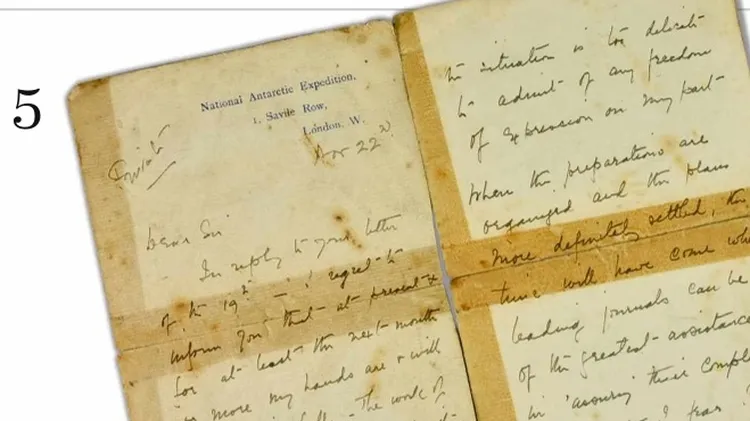 5
National Antarctic Expedition,
1, Savile Row,
London. W.
Nov 22d
Private
Dear Sir
In reply to your letter
of the 19th — I regret to
inform you that at present &
for at least the next month
or more my hands are & will
The work of
the situation is too delicate
to admit of any freedom
of expression on my part
When the preparations are
organized and the plans
more definitely settled, the
time will have come
leading journals can be
of the greatest assistance
in assuring their
I fear